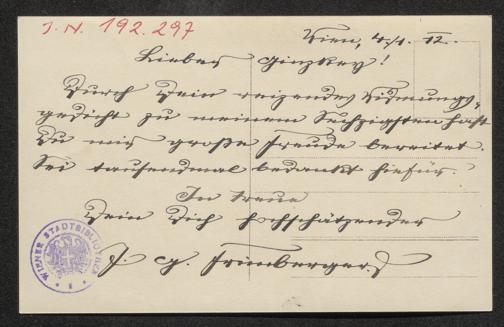 I. N. 192.297
Wien, 4./1. 12.
Lieber Ginzkey!
Durch Dein reizendes Widmungs-
gedicht zu meinem Sechzigsten hast
Du mir große Freude bereitet.
Sei tausendmal bedankt hiefür.
In Treue
Dein Dich hochschätzender
F. G. Trimberger.
WIENER STADTBIBLIOTHEK